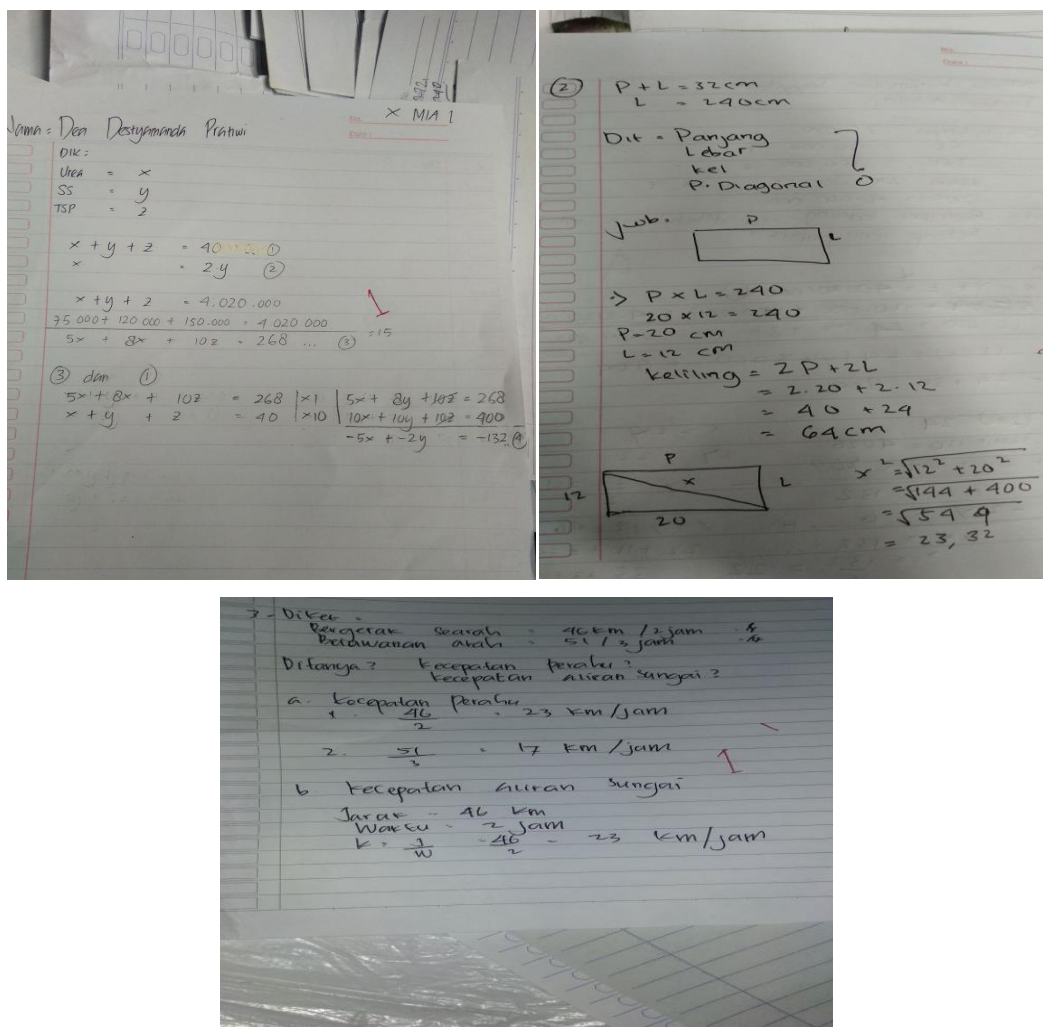 X MIA 1
Nama = Dea Destyamanda Pratiwi
DIK :
Urea = x
SS = y
TSP = z
x + y + z = 40 ①
x = 2y ②
x + y + z = 4.020.000
75.000 + 120 000 + 150.000 = 4 020 000
= 15
5x + 8x + 10z = 268 ... ③
1
③ dan ①
5x + 8x + 10z = 268 | x1 | 5x + 8y + 10z = 268
x + y + z = 40 | x10 | 10x + 10y + 10z = 400
-5x + -2y = -132 ④
② P + L = 32 cm
L = 240 cm
Dit = Panjang
Lebar
kel
P. Diagonal
Jwb.
P
L
P x L = 240
20 x 12 = 240
P = 20 cm
L = 12 cm
Keliling = 2P + 2L
= 2.20 + 2.12
= 40 + 24
= 64 cm
P
x
L
12
20
x² = √12² + 20²
= √144 + 400
= √544
= 23,32
3 - Diket =
Bergerak searah = 46 km / 2 jam
Berlawanan arah = 51 / 3 jam
Ditanya? kecepatan perahu?
kecepatan aliran sungai?
a. kecepatan perahu
1. 46/2 = 23 km/jam
2. 51/3 = 17 km/jam
1
b kecepatan aliran sungai
Jarak = 46 km
Waktu = 2 jam
k = J/W = 46/2 = 23 km/jam